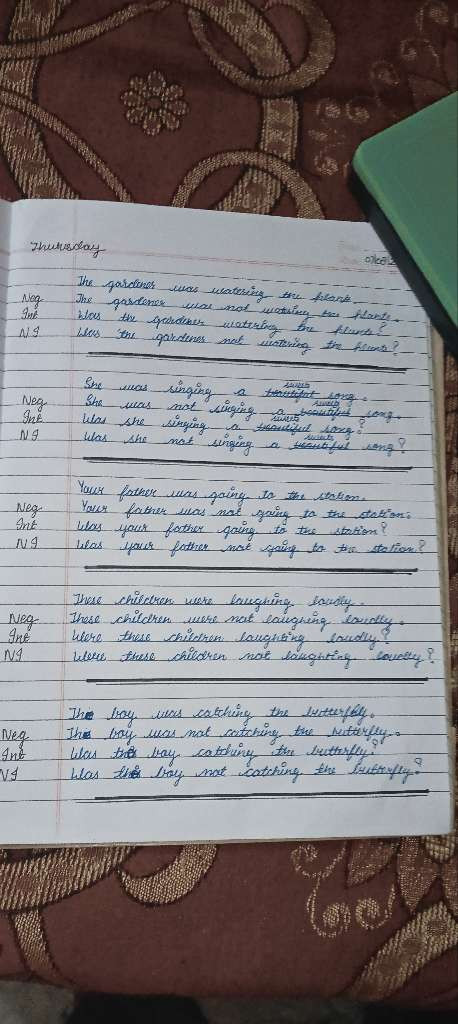 Thursday
The gardener was watering the plant.
Neg The gardener was not watering the plants.
Int Was the gardener watering the plants?
NI Was the gardener not watering the plants?
She was singing a sweet song.
Neg She was not singing a sweet song.
Int Was she singing a sweet song?
NI Was she not singing a sweet song?
Your father was going to the station.
Neg Your father was not going to the station.
Int Was your father going to the station?
NI Was your father not going to the station?
These children were laughing loudly.
Neg These children were not laughing loudly.
Int Were these children laughting loudly?
NI Were these children not laughting loudly?
The boy was catching the butterfly.
Neg The boy was not catching the butterfly.
Int Was the boy catching the butterfly?
NI Was the boy not catching the butterfly?